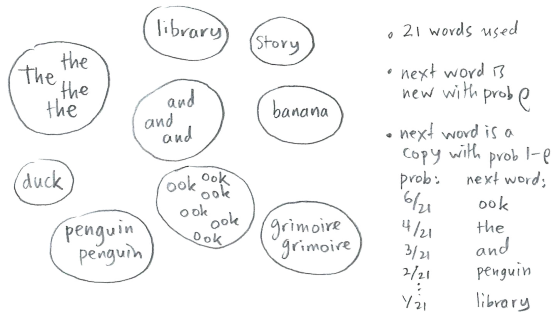 library
story
The the
the
the
and
and
and
banana
duck
ook ook
ook
ook
ook
ook
penguin
penguin
grimoire
grimoire
• 21 words used
• next word is
new with prob ρ
• next word is a
copy with prob 1-ρ
prob: next word:
6/21 ook
4/21 the
3/21 and
2/21 penguin
⋮
1/21 library